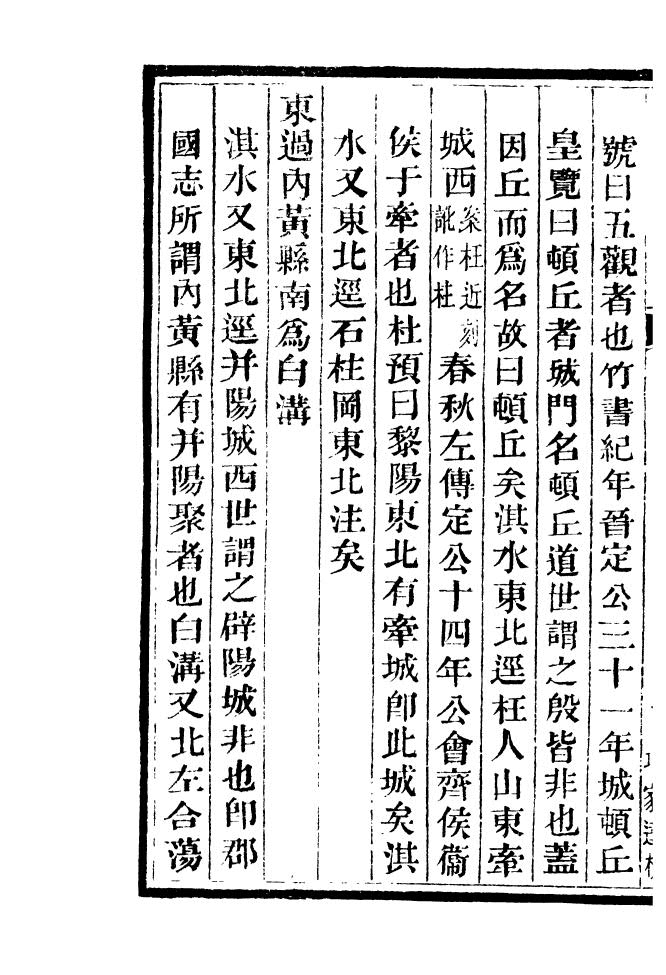 號曰五觀者也竹書紀年晉定公三十一年城頓丘
皇覽曰頓丘者城門名頓丘道世謂之殷皆非也蓋
因丘而為名故曰頓丘矣淇水東北逕枉人山東牽
城西案枉近刻訛作柱春秋左傳定公十四年公會齊侯衞
侯于牽者也杜預曰黎陽東北有牽城卽此城矣淇
水又東北逕石柱岡東北注矣
東過內黃縣南為白溝
淇水又東北逕并陽城西世謂之辟陽城非也卽郡
國志所謂內黃縣有并陽聚者也白溝又北左合蕩